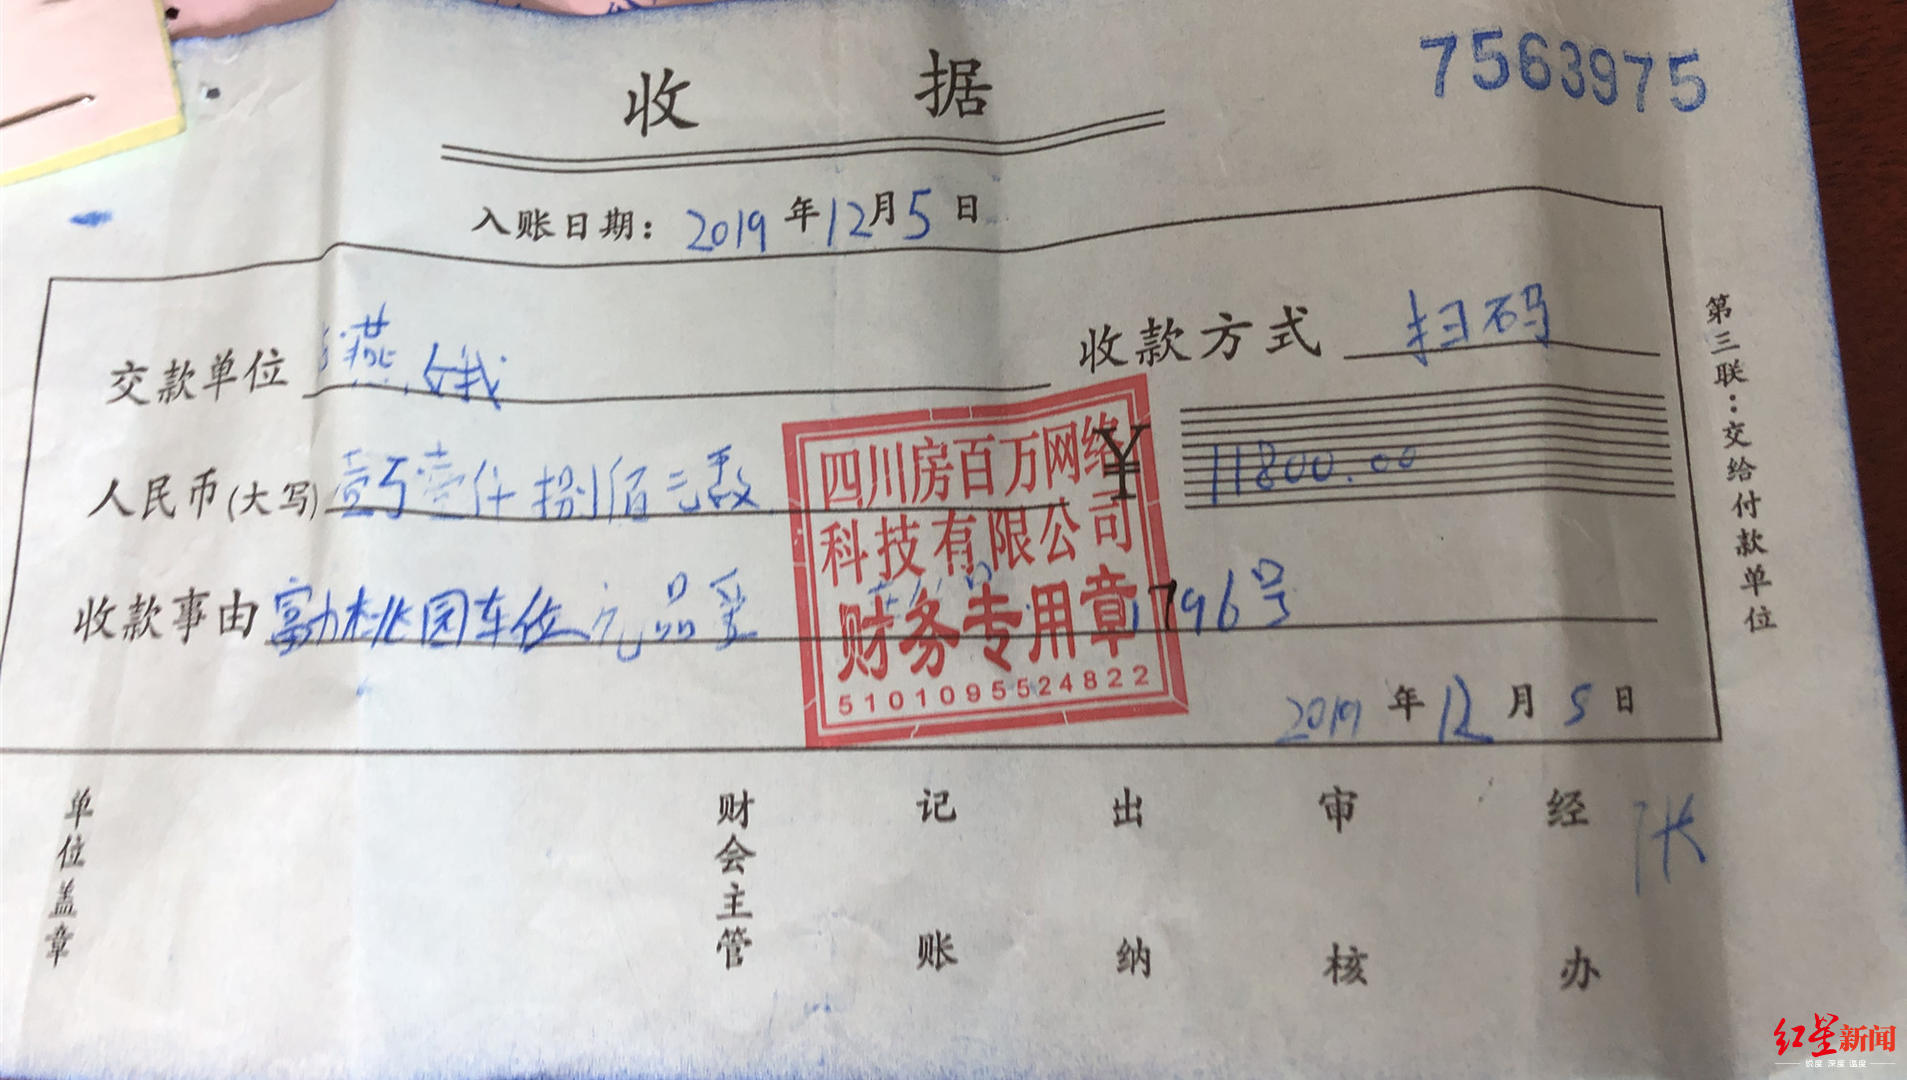 收 据
7563975
入账日期: 2019 年 12 月 5 日
交款单位 燕娥
收款方式 扫码
人民币(大写) 壹万壹仟捌佰元整
¥ 11800.00
收款事由 桃园车位 1796号
四川房百万网络
科技有限公司
财务专用章
5101095524822
2019 年 12 月 5 日
第三联:交给付款单位
单位盖章
财会主管
记账
出纳
审核
经办
张
红星新闻
锐度 深度 温度